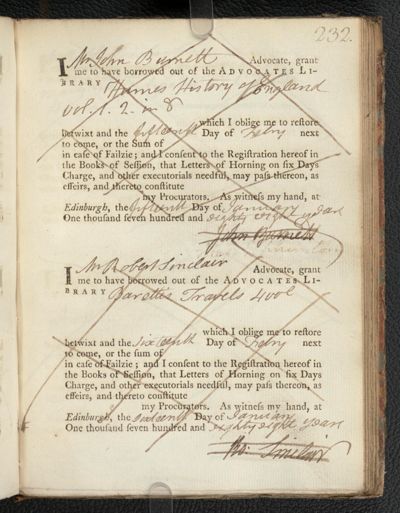 232.
I Mr John Burnett Advocate, grant
me to have borrowed out of the ADVOCATES LI-
BRARY Humes History of England
vol. 1. 2 in 8
which I oblige me to restore
betwixt and the fifteenth Day of Febry next
to come, or the Sum of
in case of Failzie; and I consent to the Registration hereof in
the Books of Session, that Letters of Horning on six Days
Charge, and other executorials needful, may pass thereon, as
effeirs, and thereto constitute
my Procurators. As witness my hand, at
Edinburgh, the fifteenth Day of January
One thousand seven hundred and eighty eight years
John Burnett
I Mr Robert Sinclair Advocate, grant
me to have borrowed out of the ADVOCATES LI-
BRARY Barettis Travels 4 vol
which I oblige me to restore
betwixt and the sixteenth Day of Febry next
to come, or the sum of
in case of Failzie; and I consent to the Registration hereof in
the Books of Session, that Letters of Horning on six Days
Charge, and other executorials needful, may pass thereon, as
effeirs, and thereto constitute
my Procurators. As witness my hand, at
Edinburgh, the sixteenth Day of January
One thousand seven hundred and eighty eight years
Ro. Sinclair